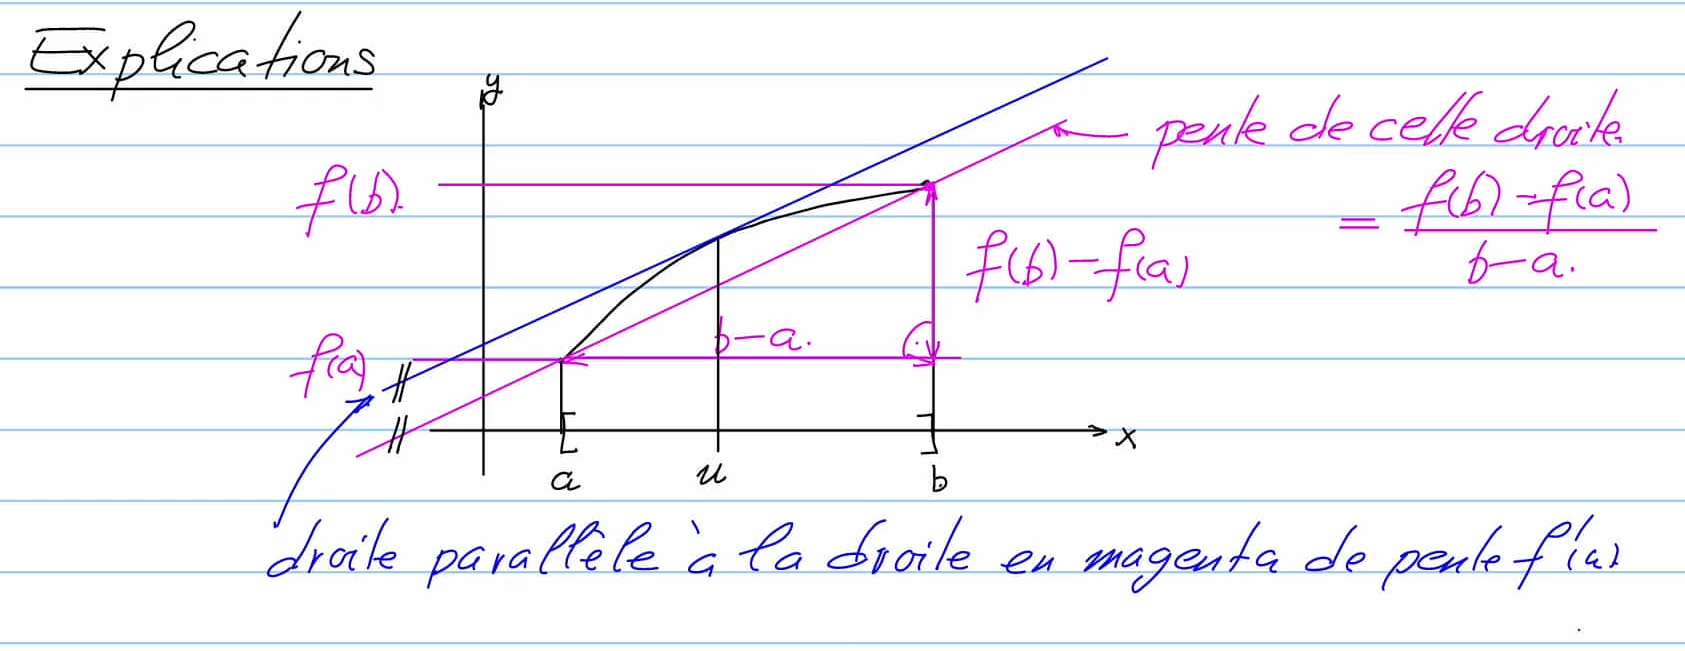 Explications
y
pente de cette droite
f(b).
= f(b) - f(a) / b-a.
f(b) - f(a)
b-a.
f(a)
x
a u b
droite parallèle à la droite en magenta de pente f'(u)